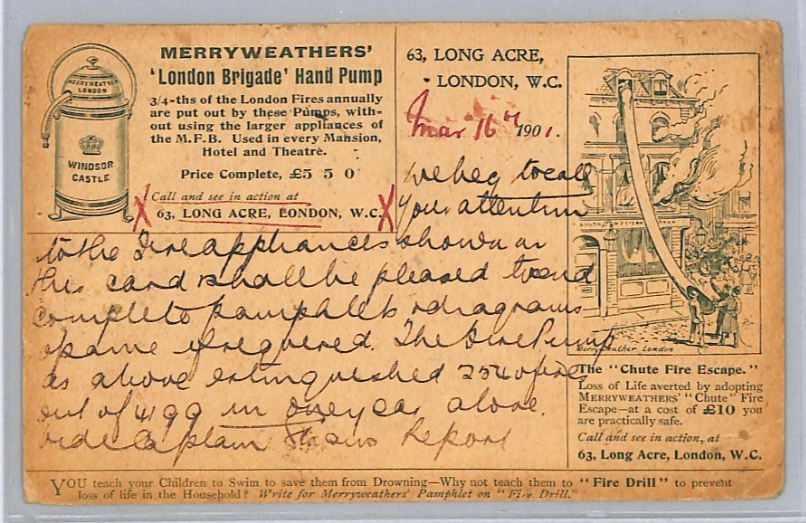 MERRYWEATHER
LONDON
WINDSOR
CASTLE
MERRYWEATHERS'
'London Brigade' Hand Pump
3/4-ths of the London Fires annually
are put out by these Pumps, with-
out using the larger appliances of
the M.F.B. Used in every Mansion,
Hotel and Theatre.
Price Complete, £5 5 0
Call and see in action at
X 63, LONG ACRE, LONDON, W.C. X
63, LONG ACRE,
LONDON, W.C.
Mar 16th 1901.
we beg to call
your attention
to the Fire appliances shown on
this card & shall be pleased to send
complete pamphlets & diagrams
of same if required. The Fire Pump
as above extinguished 2540 fires
out of 4199 in one year alone.
vide Captain Report
Merryweather London
The "Chute Fire Escape."
Loss of Life averted by adopting
MERRYWEATHERS' "Chute" Fire
Escape—at a cost of £10 you
are practically safe.
Call and see in action, at
63, Long Acre, London, W.C.
YOU teach your Children to Swim to save them from Drowning—Why not teach them to "Fire Drill" to prevent
loss of life in the Household? Write for Merryweathers' Pamphlet on "Fire Drill."